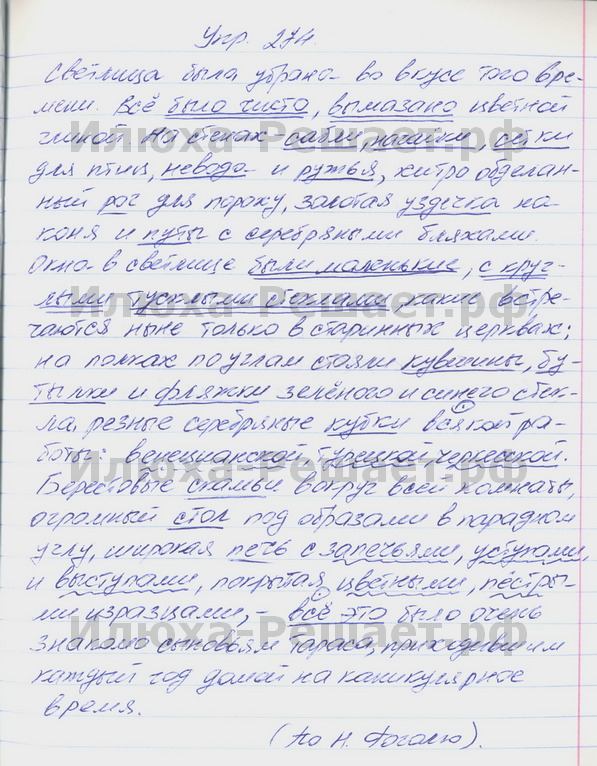 Упр. 274.
Светлица была убрана во вкусе того вре-
мени. Всё было чисто, вымазано цветной
глиной. На стенах - сабли, нагайки, сетки
для птиц, невода и ружья, хитро обделан-
ный рог для пороху, золотая уздечка на
коня и путы с серебряными бляхами.
Окна в светлице были маленькие, с круг-
лыми тусклыми стёклами, какие встре-
чаются ныне только в старинных церквах;
на полках по углам стояли кувшины, бу-
тылки и фляжки зелёного и синего стек-
ла, резные серебряные кубки всякой ра-
боты: венецианской, турецкой, черкесской.
Берестовые скамьи вокруг всей комнаты,
огромный стол под образами в парадном
углу, широкая печь с запечьями, уступами,
и выступами, покрытая цветными, пёстры-
ми изразцами, - всё это было очень
знакомо сыновьям Тараса, приходившим
каждый год домой на каникулярное
время.
(По Н. Гоголю).
Илюха-Решает.рф
Илюха-Решает.рф
Илюха-Решает.рф
Илюха-Решает.рф